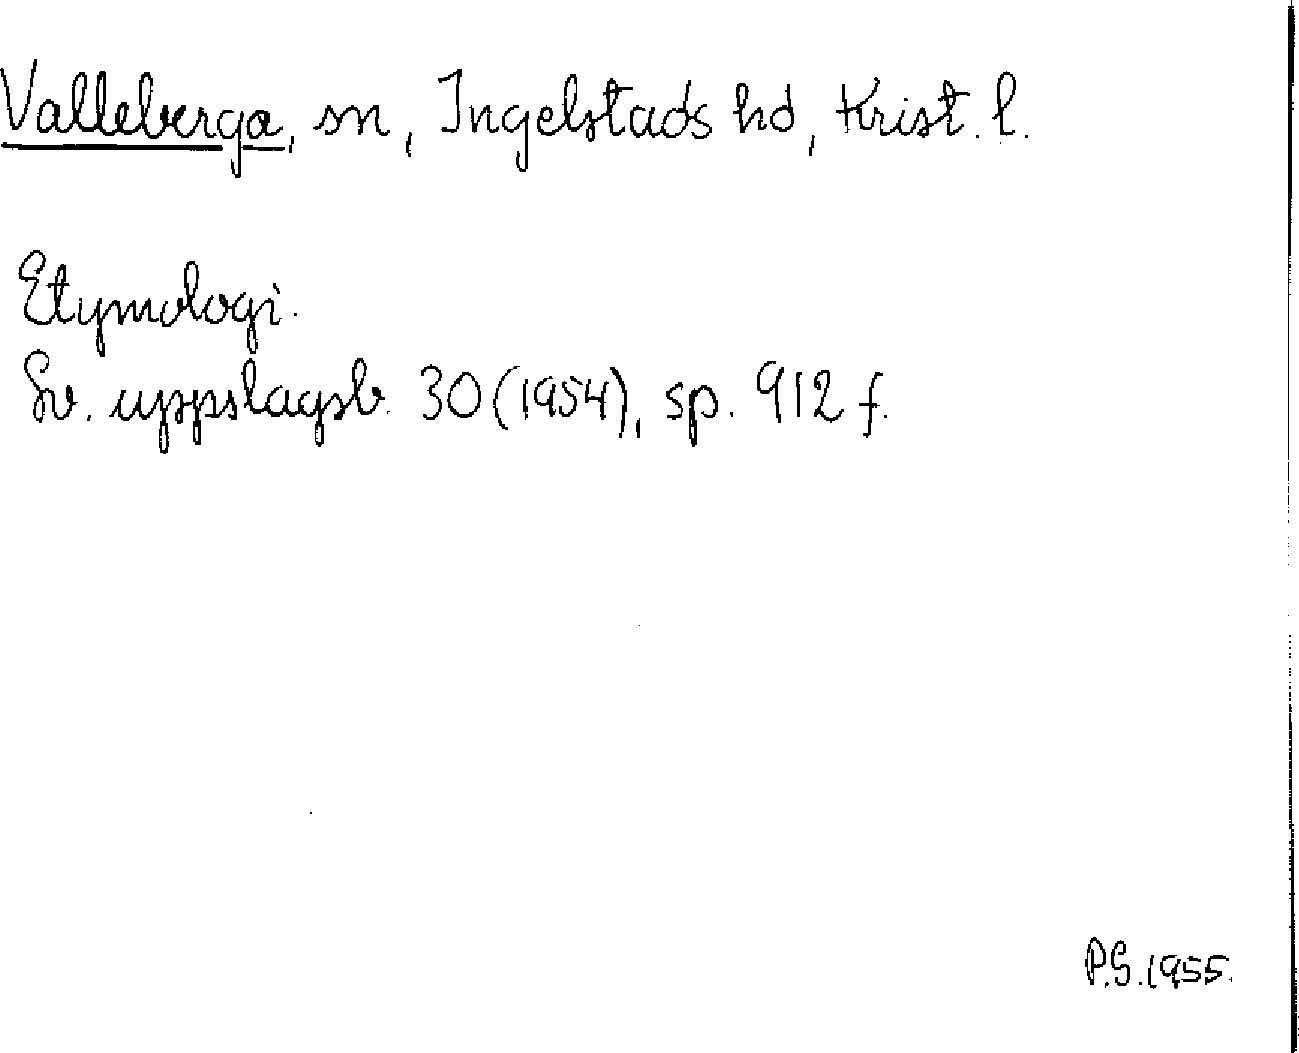 Valleberga, sn, Ingelstads hd, Krist. l.
Etymologi.
Sv. uppslagsb. 30 (1954), sp. 912 f.
P.S. 1955.